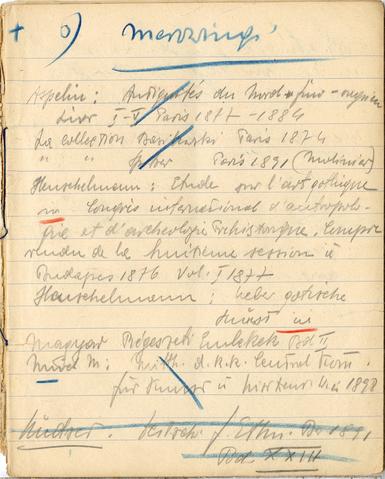 + 6) Merwingi
Aspelin: Antiquités du Nord finno-ougrien
Livr I-V Paris 1877-1884
La collection Paris 1874
" " Paris 1891 (Molinier)
Henschelmann: Etude sur l'art gothique
in Congrès international d'antropolo-
gie et d'archeologie prehistorique, Compte
rendu de la huitieme session à
Budapes 1876 Vol. I 1877
Henschelmann: ueber gotische
Kunst in
Magyar Régeszeti Emlekek Bd II
Much M: Mitth. d. k. k. Central Com.
für Kunst u histor 1898
Zeitschr f. Ethn. 1891
Bd XXIII